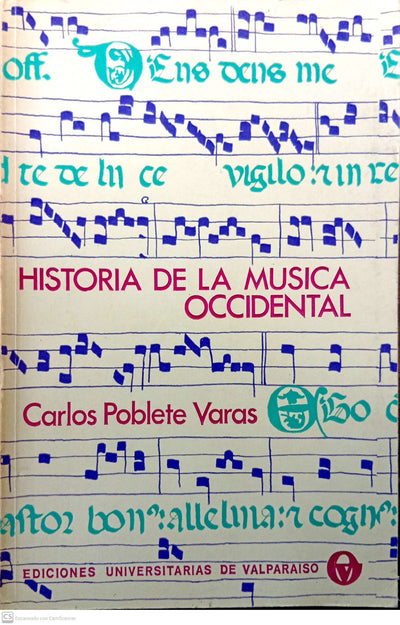 off. Deus deus me
te de lu ce vigilo: et in re
HISTORIA DE LA MUSICA
OCCIDENTAL
Carlos Poblete Varas
astor bonus: alleluia: et cogn
EDICIONES UNIVERSITARIAS DE VALPARAISO
CS Escaneado con CamScanner